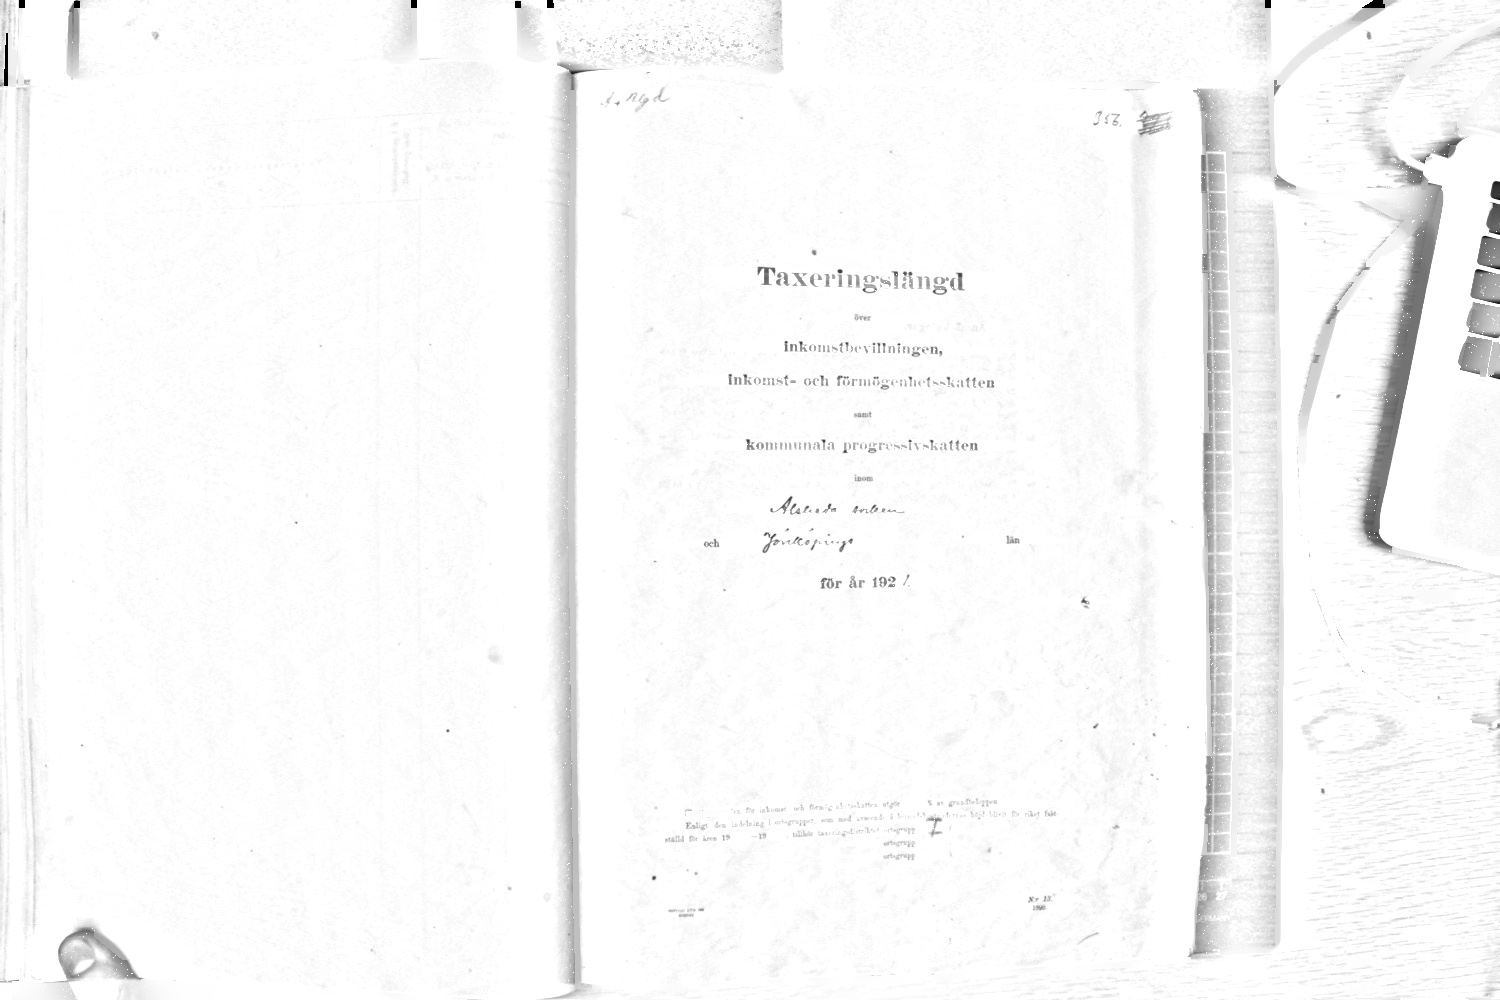 356.
Taxeringslängd
över
inkomstbevillningen,
inkomst- och förmögenhetsskatten
samt
kommunala progressivskatten
inom
Alsheda socken
och Jönköpings län
för år 1921.
för inkomst- och förmögenhetsskatten utgör % av grundbeloppen
Enligt den indelning i ortsgrupper, som med avseende å höjd blivit för riket fast-
ställd för åren 19 -19 , tillhör taxeringsdistriktet ortsgrupp I
ortsgrupp
ortsgrupp
N:r 13.
1920.